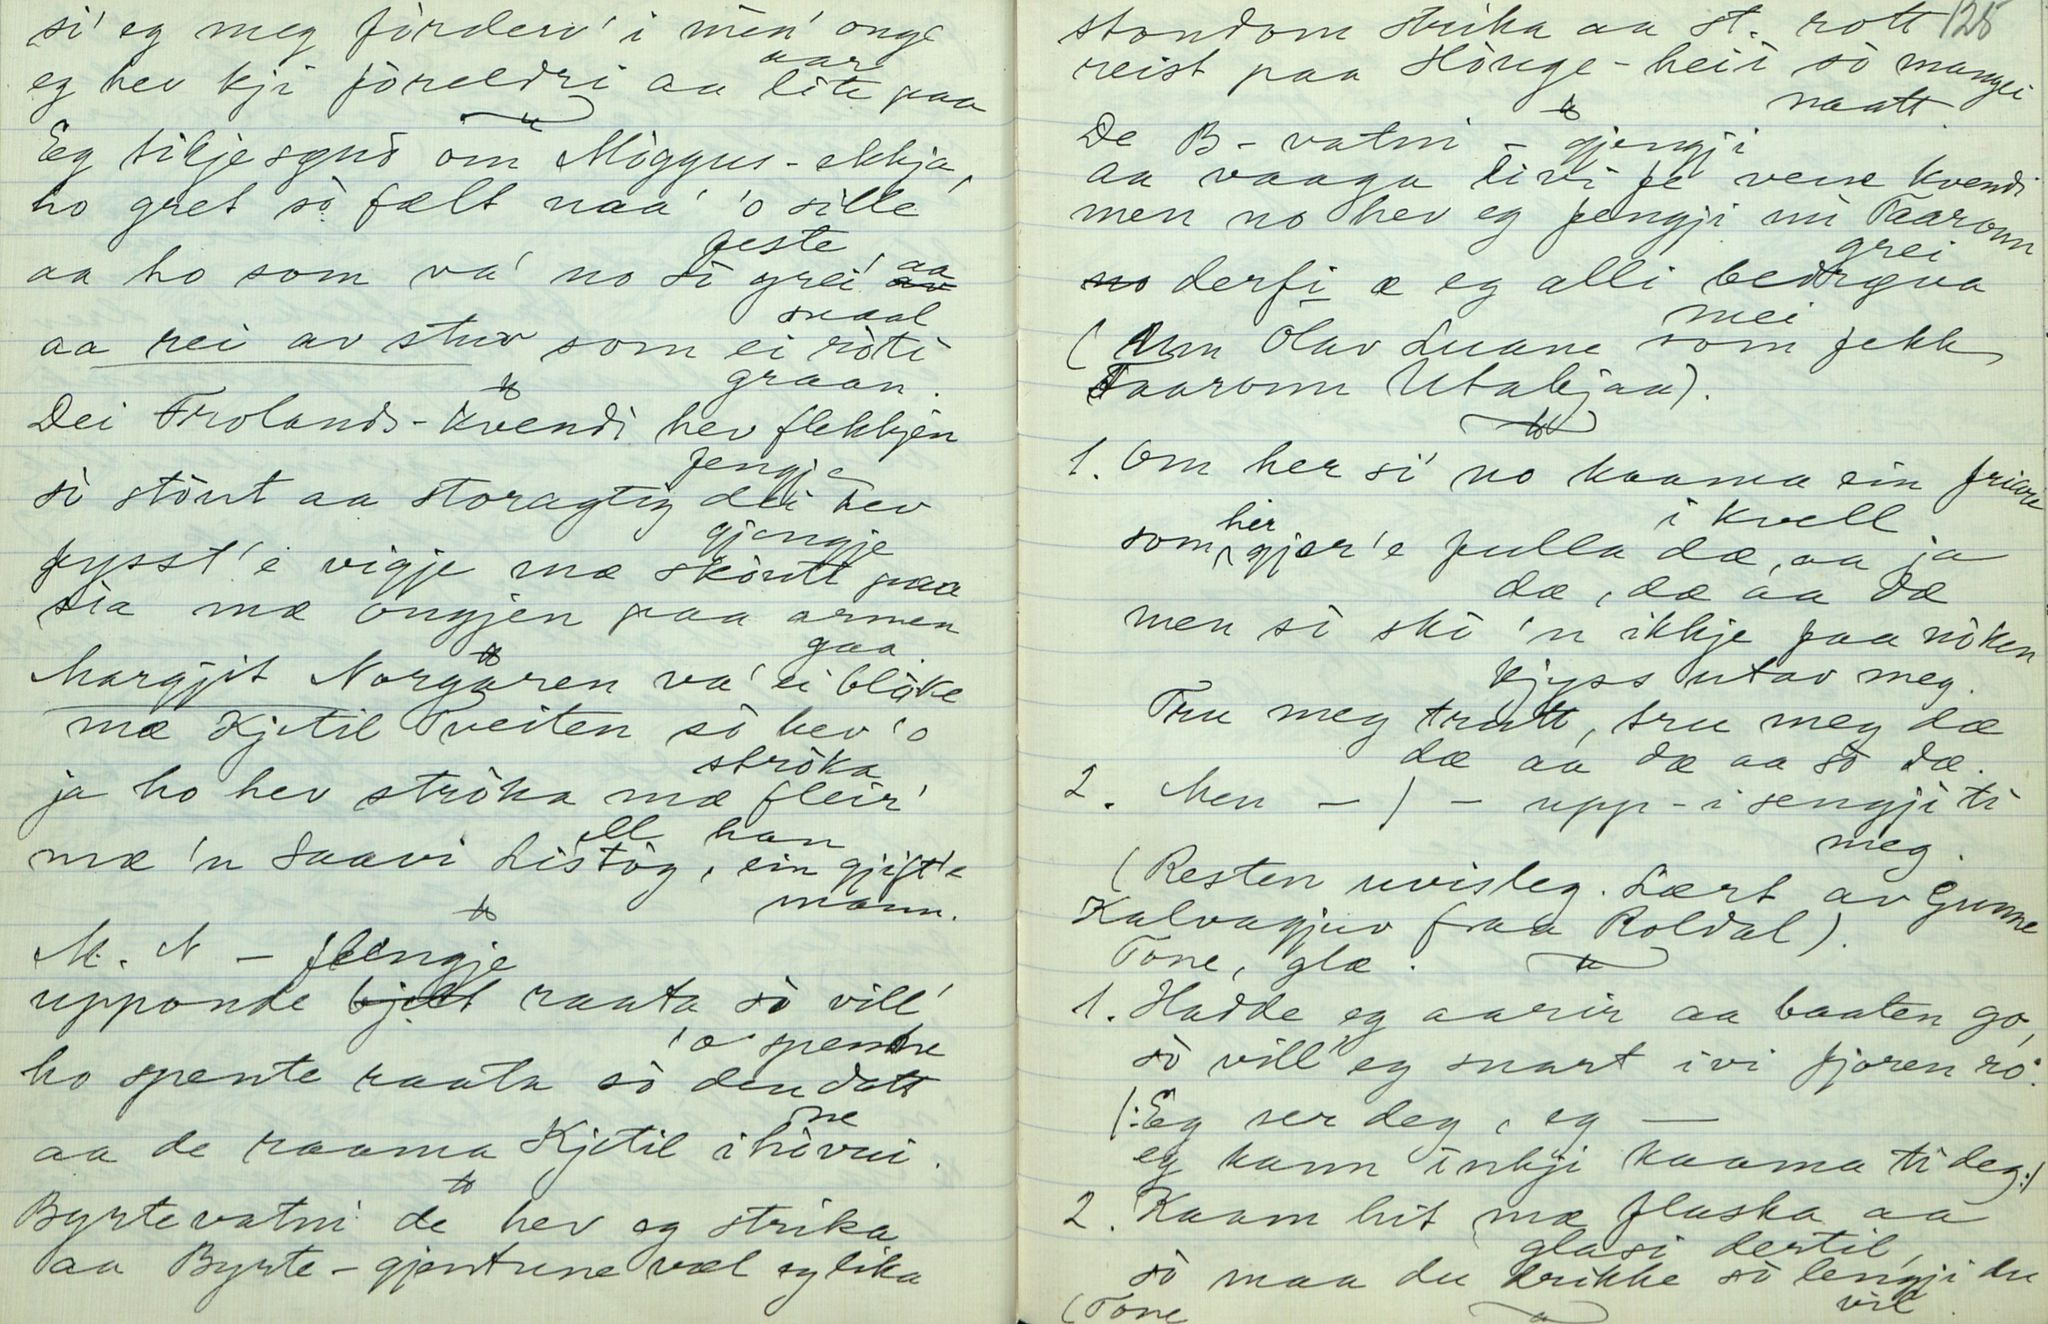 si' eg meg förderv' i mën' onge
aar
eg hev kji föreldri aa lite paa
Eg tikje synd om Möggus-ekkja,
ho gret sò fælt naa' 'o sille
feste,
aa ho som va' no si grei' aa
aa rei av stuv som ei röti
graan.
Dei Frolands-kvendi hev flekkjen
fengje
sò stönt aa storagtig dei hev
gjengje
fysst'e vigje mæ skòutt paa
sia mæ ongjen paa armen
gaa.
Margjit Norgaren va' ei blöke
mæ Kjetil Tveiten sò hev 'o
ströka
ja ho hev ströka mæ fleir'
ell han
mæ 'n Saavi Listög, ein gjift'e
mann.
M. N – flengje
upponde bjelt raata sò vill'
'o spenne
ho spente raata sò den datt
ne
aa de raama Kjetil i hövui.
Byrtevatni de hev eg strika
aa Byrte-gjentune væl eg lika
128
stondom strika aa st. rott
reist paa Höuge-heii sò mangei
naatt
De B-vatni – gjengji
aa vaaga livi fe vene kvendi
men no hev eg fengji mi Taaronn
grei
no derfi æ eg alli bedrgva
mei
(Um Olav Luane som fekk
Taaronn Utabjaa).
1. Om her si' no kaama ein friare
i kvell
som her gjer'e fulla dæ, aa ja
dæ, dæ aa dæ
men sò skò 'n ikkje faa nöken
kjyss utav meg.
Tru meg trutt, tru meg dæ
dæ aa dæ aa sò dæ.
2. Men – / – upp-i sengji ti
meg.
(Resten uvisleg. Lært av Gunne
Kalvagjuv fraa Roldal).
Tone, glæ.
1. Hadde eg aarir aa baaten go,
sò vill' eg snart ivi fjoren ro.
/: Eg ser deg, eg —
eg kann inkji kaama ti deg :/
2. Kaam hit mæ flaska aa
glasi dertil,
sò maa du drikke sò lengji du
vil.
(Tone